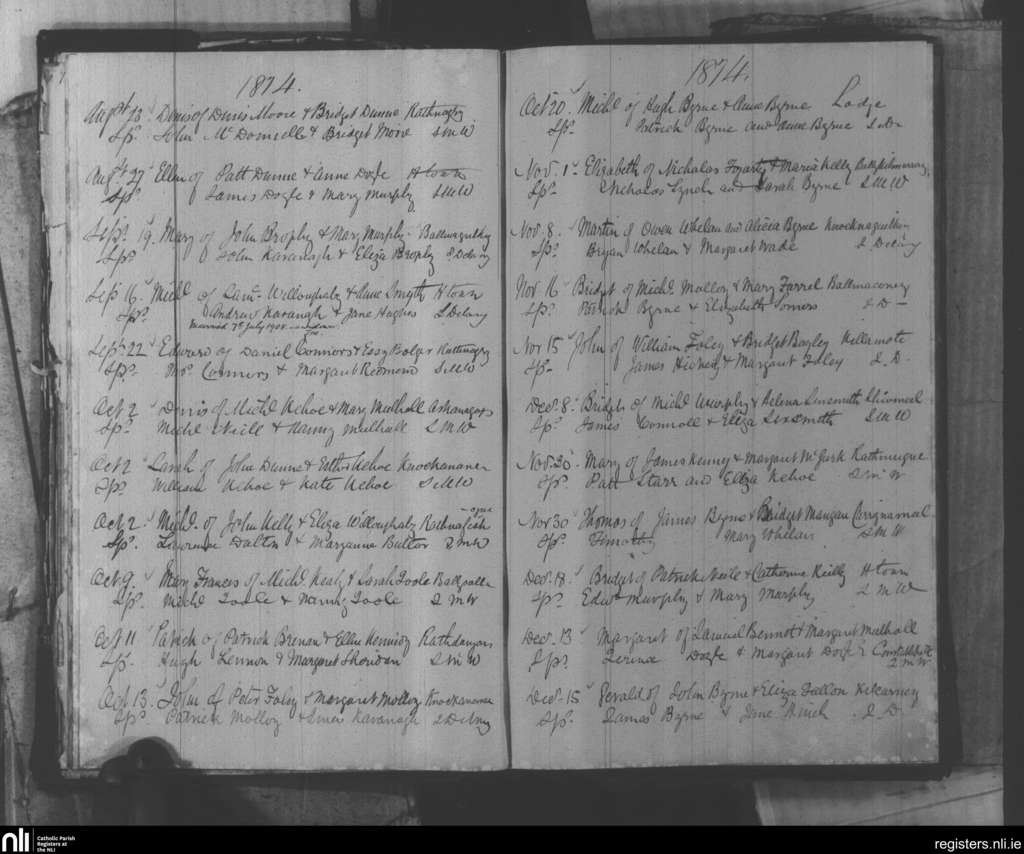 1874.
Augst 23 Denis of Denis Moore & Bridget Dunne Rathnagry
Spr John McDonnell & Bridget Moore SMW
Augst 27 Ellen of Patt Dunne & Anne Doyle H Town
Sp James Doyle & Mary Murphy SMW
Sepr 19 Mary of John Brophy & Mary Murphy
Spr John Kavanagh & Eliza Brophy S Delany
Sep 16 Michl of Saml Willoughby & Anne Smyth H Town
Spr Andrew Kavanagh & Jane Hughes S Delany
Married 7th July 1908
Sepr 22 Edward of Daniel Connors & Essy Bolger Rathnagry
Spr Connors & Margaret Redmond SMW
Oct 2 Denis of Michl Kehoe & Mary Mulhall
Spr Michl Neill & Nanny Mulhall SMW
Oct 2 Sarah of John Dunne & Esther Kehoe Knockananna
Sp William Kehoe & Kate Kehoe SMW
Oct 2 Michl of John Kelly & Eliza Willoughby
Spr Lawrence Dalton & Maryanne Butler SMW
Oct 9 Mary Frances of Michl Healy & Sarah Toole
Spr Michl Toole & Nanny Toole SMW
Oct 11 Patrick of Patrick Brenan & Ellen Kennedy
Spr Hugh Lennon & Margaret Sheridan SMW
Oct 13 John of Peter Foley & Margaret Molloy Knockananna
Spr Patrick Molloy & Kavanagh S Delany
1874.
Oct 20 Michl of Hugh Byrne & Anne Byrne Lodge
Spr Patrick Byrne and Anne Byrne
Nov. 1 Elizabeth of Nicholas Fogarty & Maria Kelly
Spr Nicholas Lynch and Sarah Byrne SMW
Nov. 8 Martin of Owen Whelan and Alicia Byrne
Spr Bryan Whelan & Margaret Wade
Nov 16 Bridget of Michl Molloy & Mary Farrel
Spr Patrick Byrne & Elizabeth Somers S D
Nov 15 John of William Foley & Bridget Bagley Killamote
Sp James Hickey & Margaret Foley S D
Dec. 8 Bridget of Michl Murphy & Helena Sixsmith
Spr James Connell & Eliza Sixsmith SMW
Nov. 20 Mary of James Kenny & Margaret McGurk
Spr Patt Starr and Eliza Kehoe SMW
Nov 30 Thomas of James Byrne & Bridget Mangan
Spr Timothy Mary Whelan SMW
Dec. 18 Bridget of Patrick Neile & Catherine Kielly H Town
Spr Edwd Murphy & Mary Murphy SMW
Dec. 13 Margaret of Samuel Bennett & Margaret Mulhall
Spr Terence Doyle & Margaret Doyle
SMW
Dec. 15 Gerald of John Byrne & Eliza Fallon Kilcarney
Spr James Byrne & Jane S D
nli Catholic Parish
Registers at
the NLI
registers.nli.ie